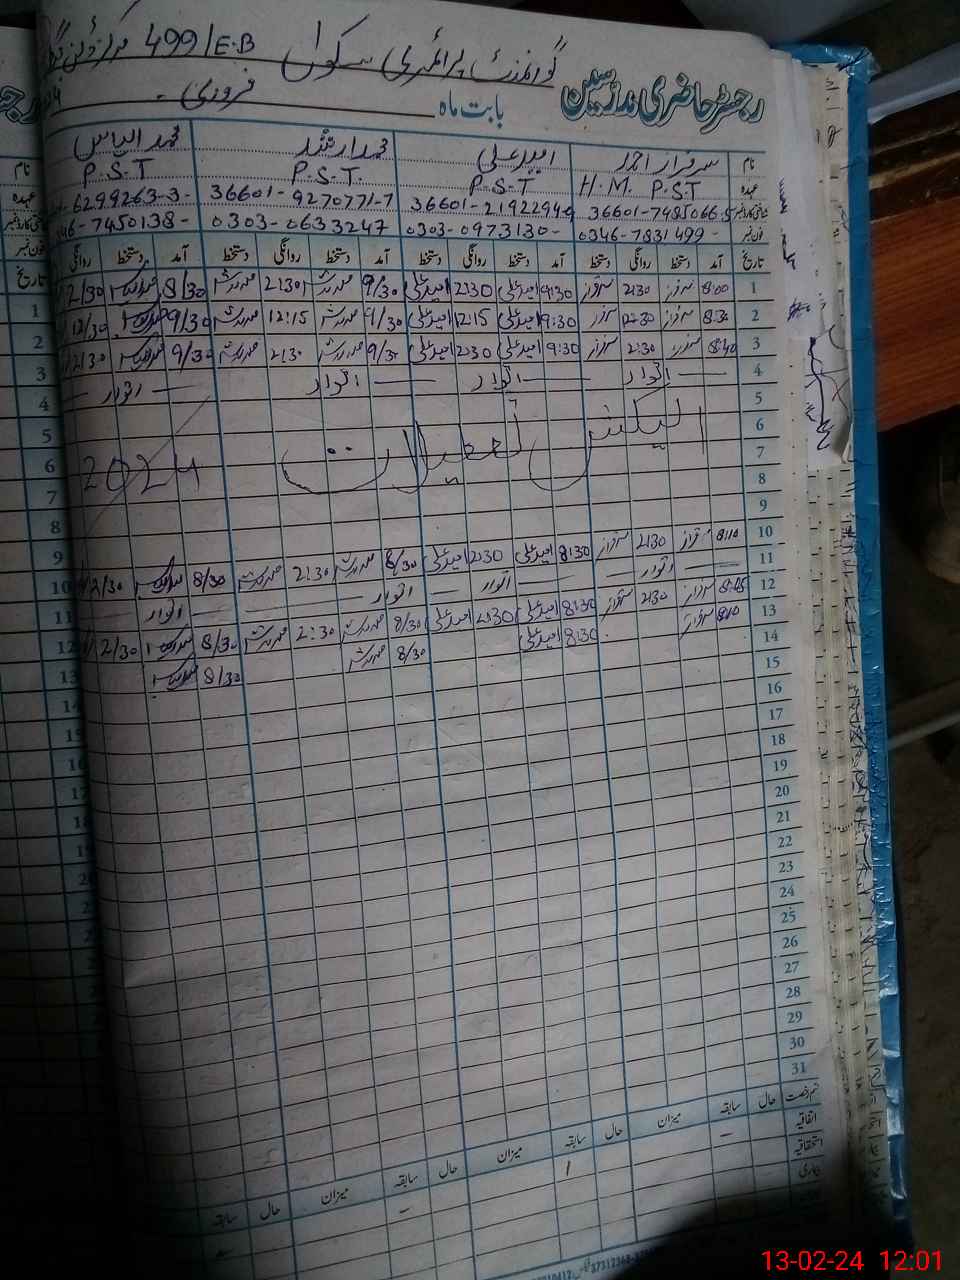 گورنمنٹ پرائمری سکول 499/E.B
رجسٹر حاضری مدرسین
بابت ماہ فروری
نام سرفراز احمد امیر علی محمد ارشد محمد الیاس
عہدہ H.M. P.S.T P.S.T P.S.T. P.S.T
36601-7485066-5 36601-2192294-9 36601-9270771-7 6299263-3-
فون نمبر 0346-7831499- 0303-0973130- 0303-0633247 346-7450138-
تاریخ آمد دستخط روانگی دستخط آمد دستخط روانگی دستخط آمد دستخط روانگی دستخط آمد دستخط روانگی
1 8:00 سرفراز 2:30 سرفراز 9:30 امیر علی 2:30 امیر علی 9/30 محمد ارشد 2:30 محمد ارشد 8/30 2/30
2 8:30 سرفراز 12:30 سرفراز 9:30 امیر علی 12:15 امیر علی 9/30 محمد ارشد 12:15 محمد ارشد 9/30 12/30
3 8:40 سرفراز 2:30 سرفراز 9:30 امیر علی 2:30 امیر علی 9/30 محمد ارشد 2:30 محمد ارشد 9/30 2/30
4 اتوار اتوار اتوار اتوار
5
6 الیکشن تعطیلات 2024
7
8
9
10 8:10 سرفراز 2:30 سرفراز 8:30 امیر علی 2:30 امیر علی 8/30 محمد ارشد 2:30 محمد ارشد 8/30 2/30
11 اتوار اتوار اتوار اتوار
12 8:45 سرفراز 2:30 سرفراز 8:30 امیر علی 2:30 امیر علی 8/30 محمد ارشد 2:30 محمد ارشد 8/30 2/30
13 8:10 سرفراز 8:30 امیر علی 8/30 محمد ارشد 8/30
14
15
16
17
18
19
20
21
22
23
24
25
26
27
28
29
30
31
حال سابقہ میزان حال سابقہ میزان حال سابقہ میزان حال سابقہ
اتفاقیہ
استحقاقیہ 1
بیماری
13-02-24 12:01